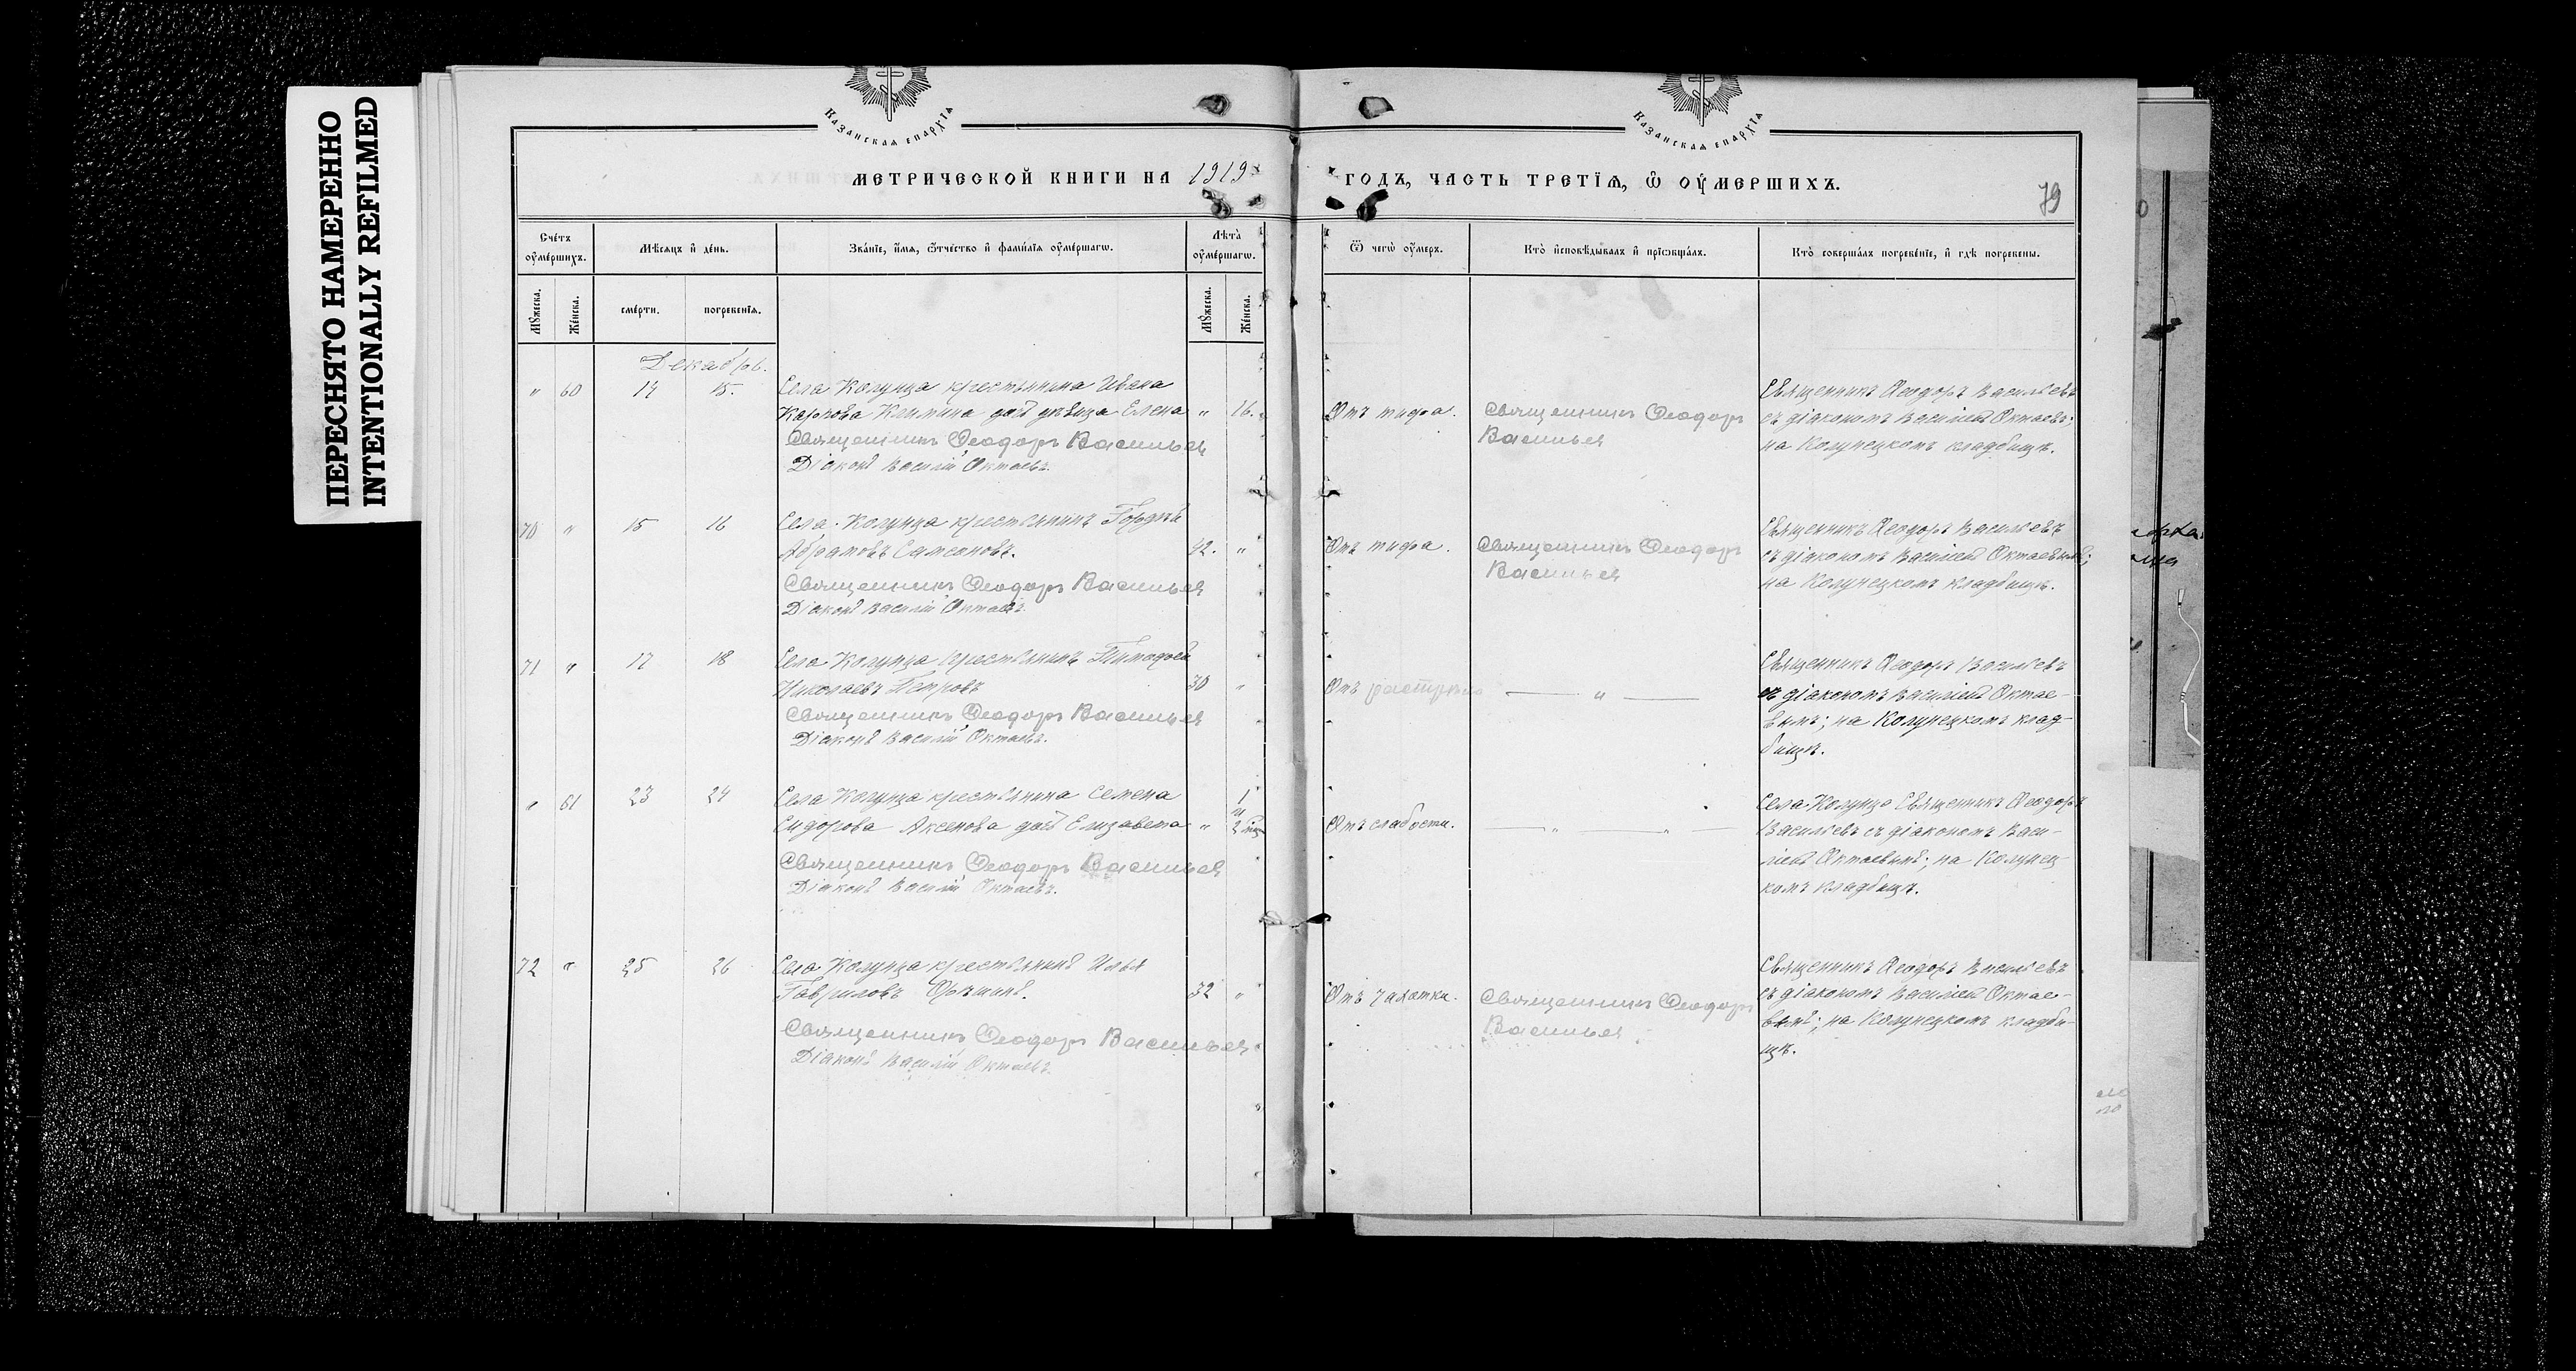 ПЕРЕСНЯТО НАМЕРЕННО
INTENTIONALLY REFILMED
Казанская епархїѧ
Казанская епархїѧ
МЕТРИЧЕСКОЙ КНИГИ НА 1919
ГОДЪ, ЧАСТЬ ТРЕТЇѦ, Ѽ ОУМЕРШИХЪ.
79
Счетъ оумершихъ.
Мѣсяцъ и день.
Званїе, имя, ѿчество и фамилїя оумершагѡ.
Лѣта оумершагѡ.
Ѿ чегѡ оумеръ.
Кто исповѣдывалъ и прїѡбщалъ.
Кто совершалъ погребенїе, и гдѣ погребены.
Мꙋжеска.
Женска.
смерти.
погребенїя.
Мꙋжеска.
Женска.
Декабрь.
" 60 14 15. Села Колунца крестьянина Ивана
Карпова Климина дочь дѣвица Елена " 16.
Священникъ Ѳеодоръ Васильевъ
Дiаконъ Василiй Октаевъ.
Отъ тифа.
Священникъ Ѳеодоръ
Васильевъ
Священникъ Ѳеодоръ Васильевъ
съ дiакономъ Василiемъ Октаевъ;
на Колунецкомъ кладбищѣ.
70 " 15 16 Села Колунца крестьянинъ Гордѣй
Абрамовъ Самсоновъ. 42. "
Священникъ Ѳеодоръ Васильевъ
Дiаконъ Василiй Октаевъ.
Отъ тифа.
Священникъ Ѳеодоръ
Васильевъ
Священникъ Ѳеодоръ Васильевъ
съ дiакономъ Василiемъ Октаевымъ;
на Колунецкомъ кладбищѣ.
71 " 17 18 Села Колунца крестьянинъ Тимофей
Николаевъ Петровъ 30 "
Священникъ Ѳеодоръ Васильевъ
Дiаконъ Василiй Октаевъ.
Отъ
"
Священникъ Ѳеодоръ Васильевъ
съ дiакономъ Василiемъ Октае-
вымъ; на Колунецкомъ клад-
бищѣ.
" 61 23 24 Села Колунца крестьянина Семена
Сидорова Аксенова дочь Елизавета " 1 и 2 мѣц
Священникъ Ѳеодоръ Васильевъ
Дiаконъ Василiй Октаевъ.
Отъ слабости.
" "
Села Колунца Священникъ Ѳеодоръ
Васильевъ съ дiакономъ Васи-
лiемъ Октаевымъ; на Колунец-
комъ кладбищѣ.
72 " 25 26 Села Колунца крестьянинъ Илья
Гавриловъ Орѣшинъ. 32 "
Священникъ Ѳеодоръ Васильевъ
Дiаконъ Василiй Октаевъ.
Отъ чахотки.
Священникъ Ѳеодоръ
Васильевъ
Священникъ Ѳеодоръ Васильевъ
съ дiакономъ Василiемъ Октае-
вымъ; на Колунецкомъ кладби-
щѣ.